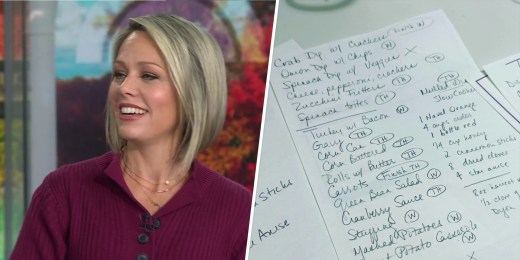 Crab Dip w/ Crackers Finish W
Onion Dip w/ Chips W
Spinach Dip w/ Veggies X
Cheese, pepperoni, crackers TH
Zucchini Fritters TH
Spinach bites TH
Turkey w/ Bacon W
Gravy TH
Corn Can TH
Corn Buttered TH
Rolls w/ Butter TH
Carrots Finish TH
Green Bean Salad W
Cranberry Sauce TH
Stuffing W
Mashed Potatoes W
Potato Casserole
W
Mulled
Slow Cooker
1 Naval Orange
4 cups cider
1 bottle red
1/4 cup honey
2 cinnamon sticks
8 dried cloves
4 star anise
Sticks
Anise